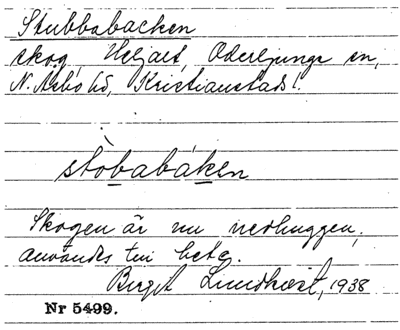 Stubbabacken
skog, Heljalt, Oderljunga sn,
N. Åsbo hd, Kristianstads l.
stòbabáken
Skogen är nu nedhuggen,
användes till betg.
Birgit Lundkvist, 1938
Nr 5499.